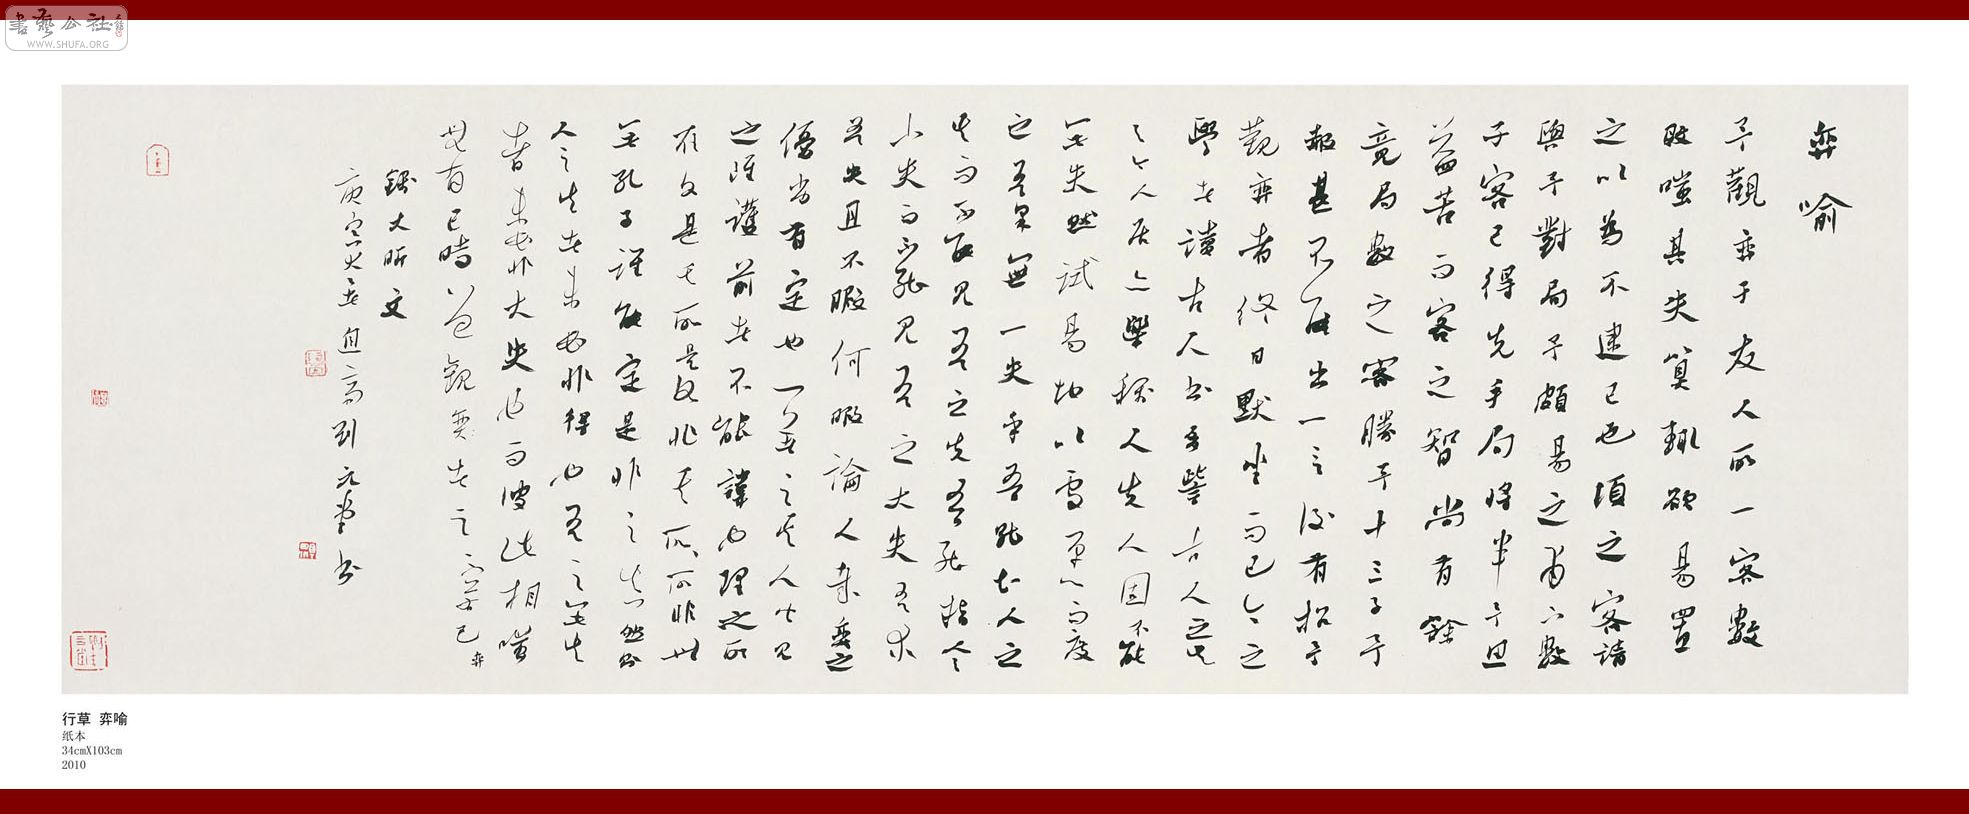 書藝公社
WWW.SHUFA.ORG
弈喻
予觀弈于友人所一客數
敗嗤其失算輒欲易置
之以為不逮己也頃之客請
與予對局予頗易之甫下數
子客已得先手局將半予思
益苦而客之智尚有餘
竟局數之客勝予十三子予
赧甚不能出一言後有招予
觀弈者終日默坐而已今之
學者讀古人書多訾古人之失
與今人居亦樂稱人失人固不能
無失然試易地以處平心而度
之吾果無一失乎吾能知人之
失而不能見吾之失吾能指人
小失而不能見吾之大失吾求
吾失且不暇何暇論人哉弈之
優劣有定也一着之失人皆見
之雖護前者不能諱也理之所
在各是其所是各非其所非世
無孔子誰能定是非之真然則
人之失者未必非得也吾之無失
者未必非大失也而彼此相嗤
無有已時曾觀弈者之不若已 弈
錢大昕文
庚寅 劉元堂書
行草 弈喻
纸本
34cmX103cm
2010